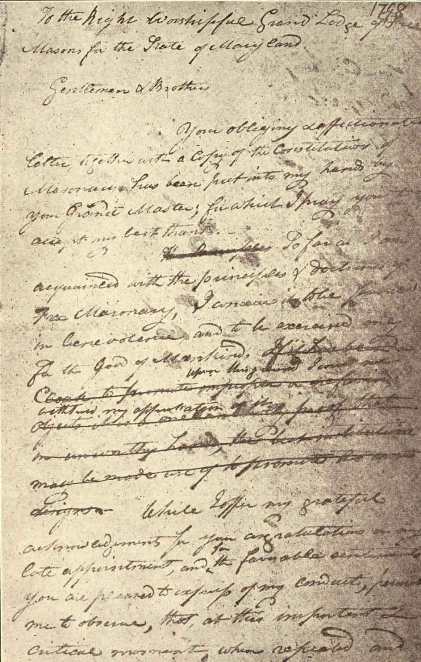 1798
To the Right Worshipful Grand Lodge of Free
Masons for the State of Maryland.
Gentlemen & Brothers
Your obliging & affectionate
letter together with a Copy of the Constitutions of
Masonry has been put into my hands by
your Grand Master; for which I pray you to
accept my best thanks.
So far as I am
acquainted with the principles & doctrines of
Free Masonry, I conceive it to be founded
in benevolence and to be exercised only
for the good of Mankind.
upon this ground
my approbation of
no unworthy
may be made use of to promote the worst
designs
While I offer my grateful
acknowledgements for your congratulations on my
late appointment and for the favorable sentiments
you are pleased to express of my conduct, permit
me to observe, that at this important &
critical moment, when repeated and